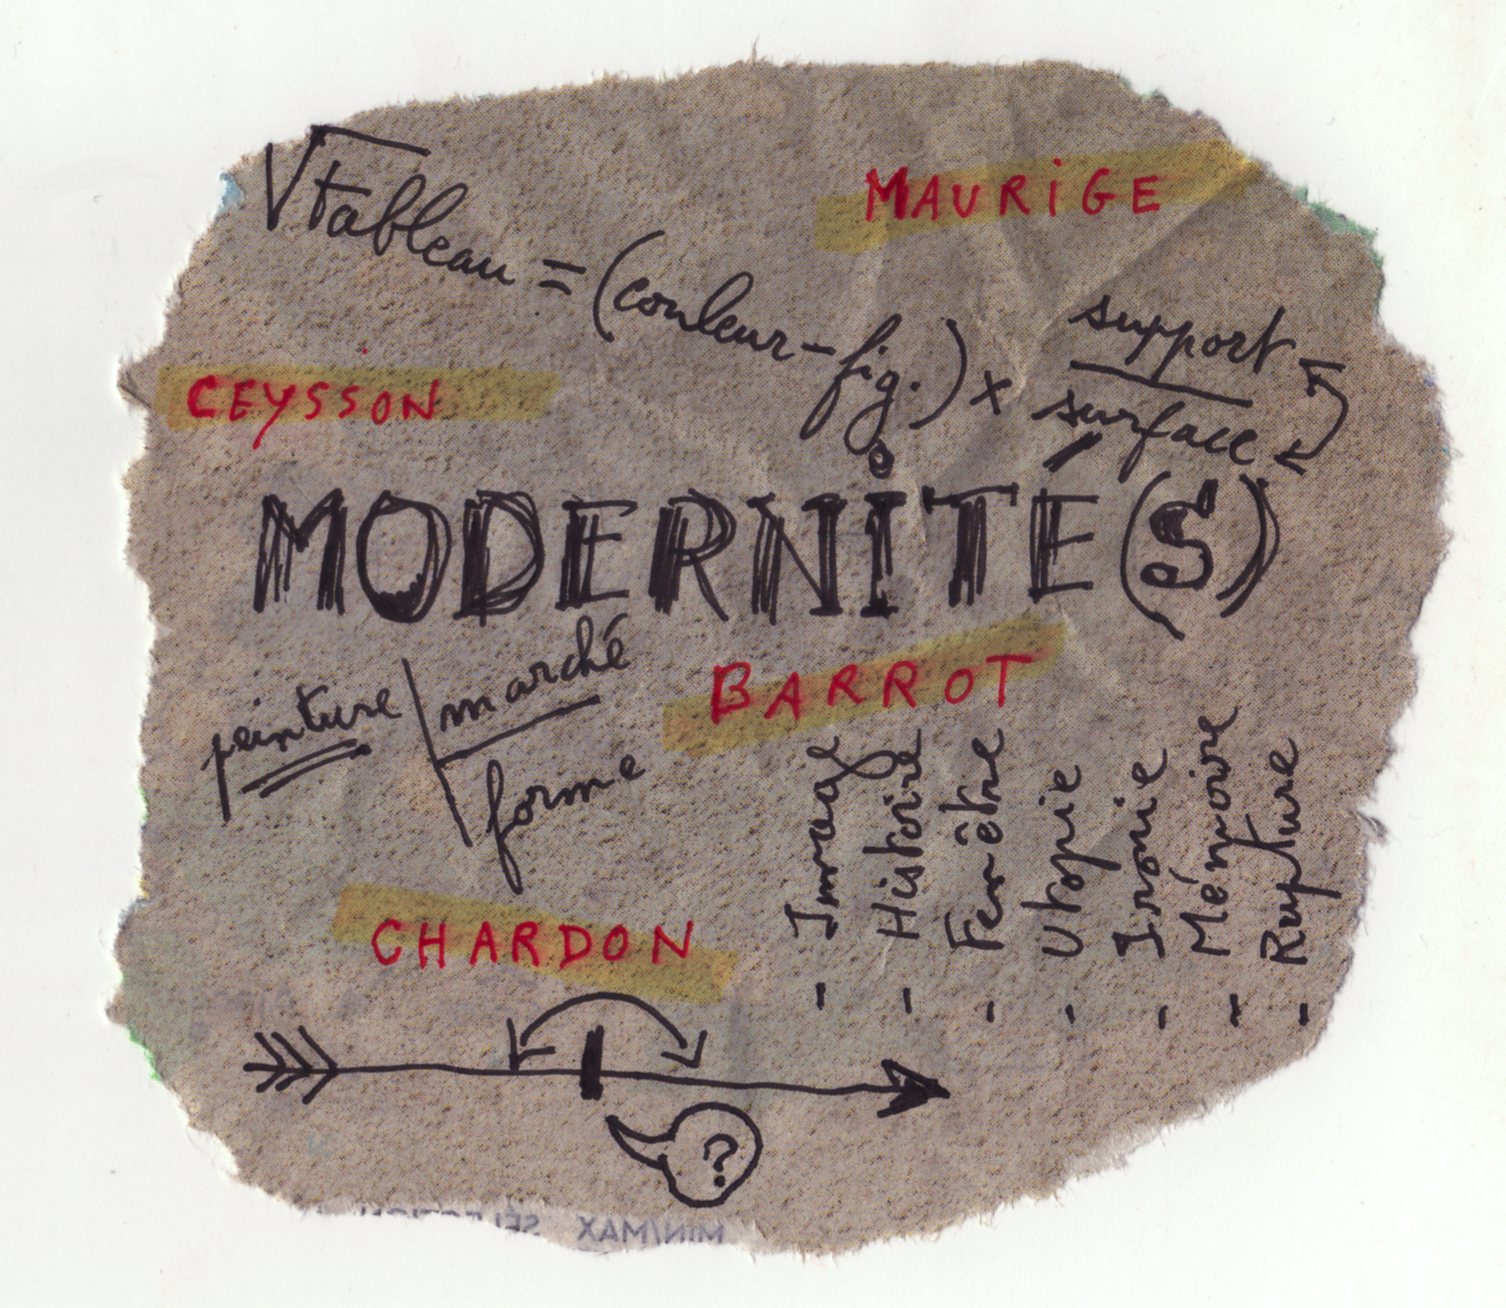 MAURIGE
√Tableau = (couleur-fig.) x support / surface
CEYSSON
MODERNITÉ(S)
peinture | marché
forme
BARROT
- Image
- Histoire
- Fenêtre
- Utopie
- Ironie
- Mémoire
- Rupture
CHARDON
?
MIN/MAX